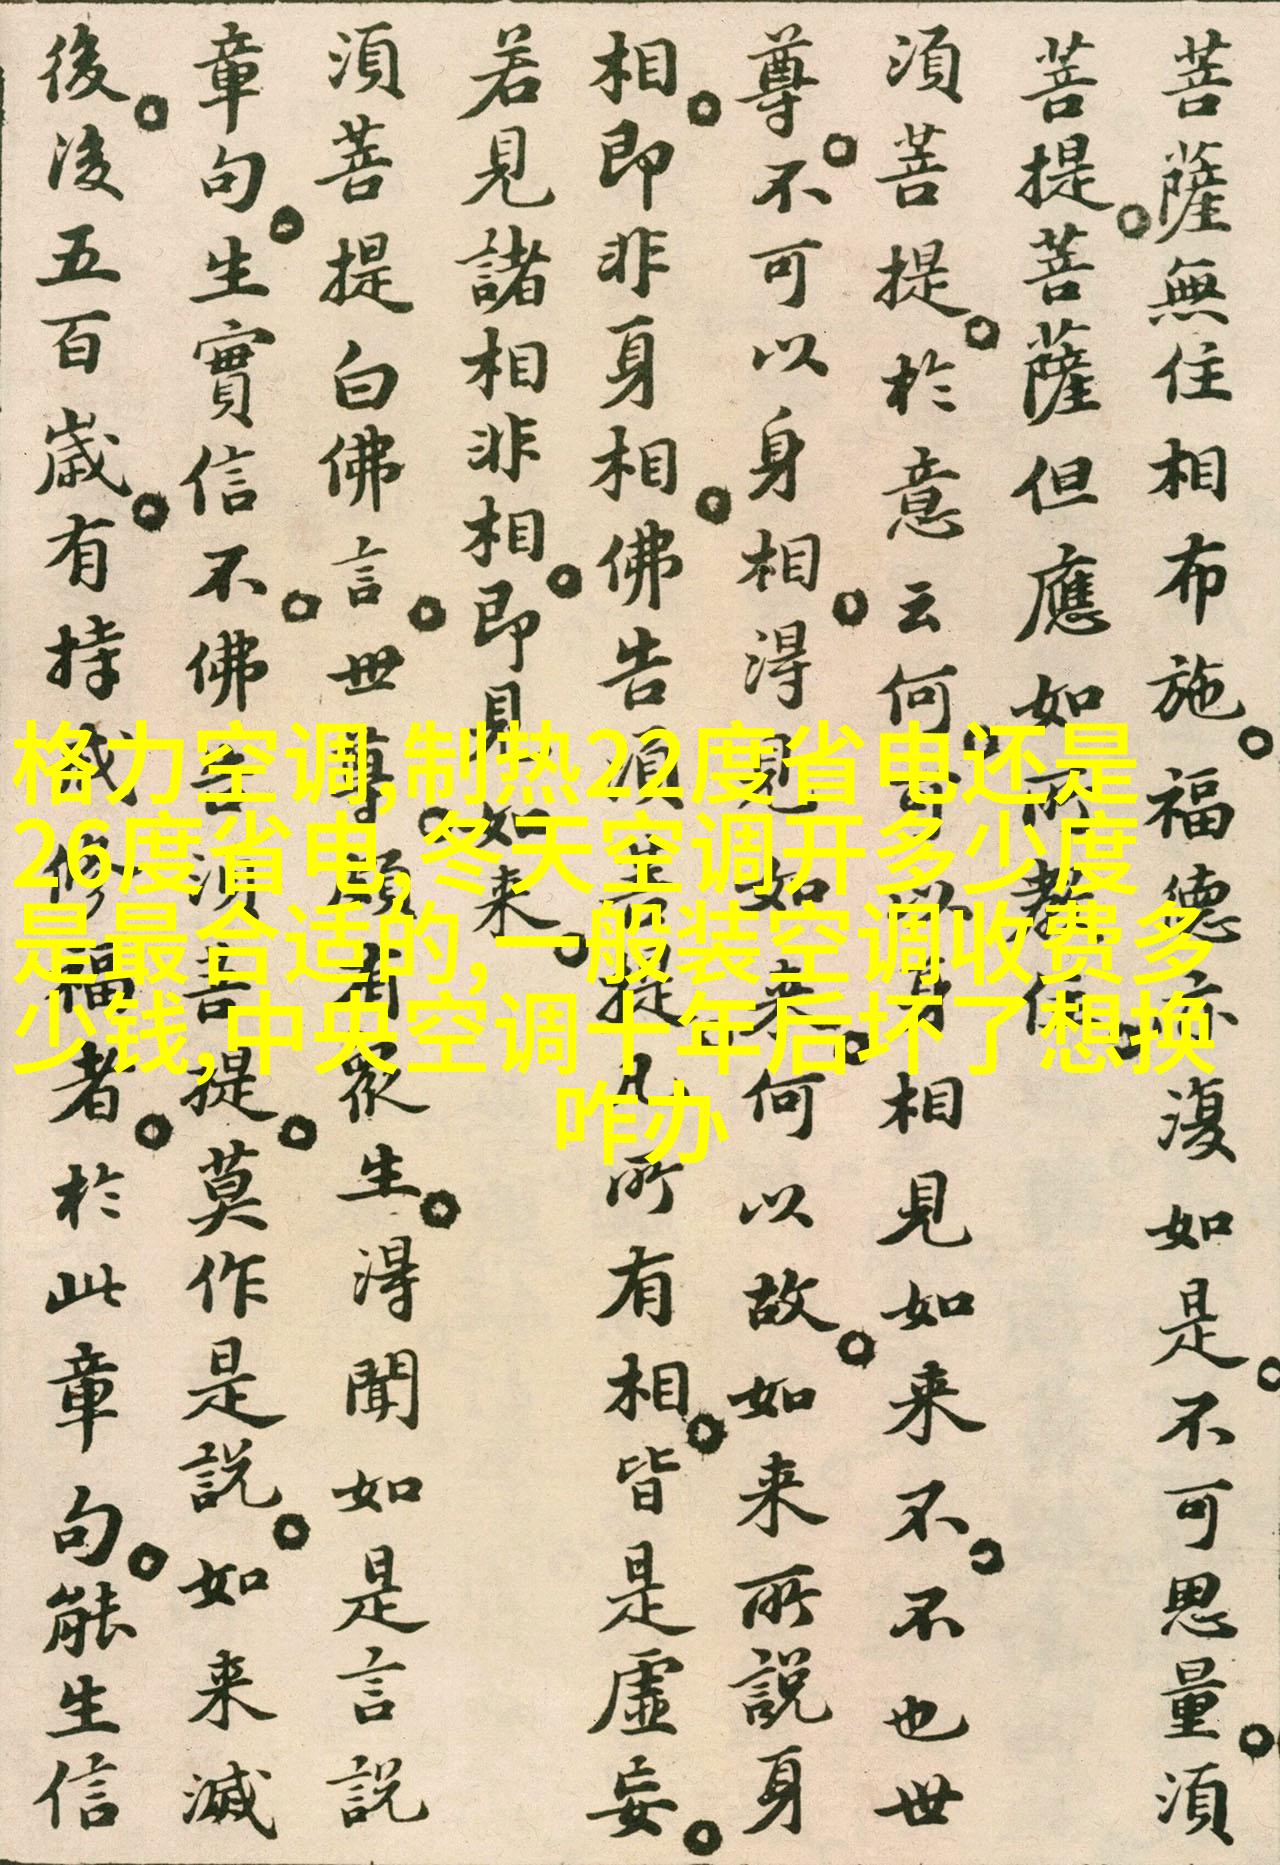 菩薩無住相布施。福德亦復如是。不可思量。須
菩提。菩薩但應如所教住。
須菩提。於意云何。可以身相見如来不。不也世
尊。不可以身相。得見如来。何以故。如来所說身
相。即非身相。佛告須菩提。凡所有相。皆是虛妄。
若見諸相非相。即見如来。
須菩提白佛言。世尊。頗有眾生。得聞如是言說
章句。生實信不。佛告須菩提。莫作是說。如来滅
後。後五百歲。有持戒修福者。於此章句。能生信
格力空调,制热22度省电还是
26度省电,冬天空调开多少度
是最合适的,一般装空调收费多
少钱,中央空调十年后坏了想换
咋办